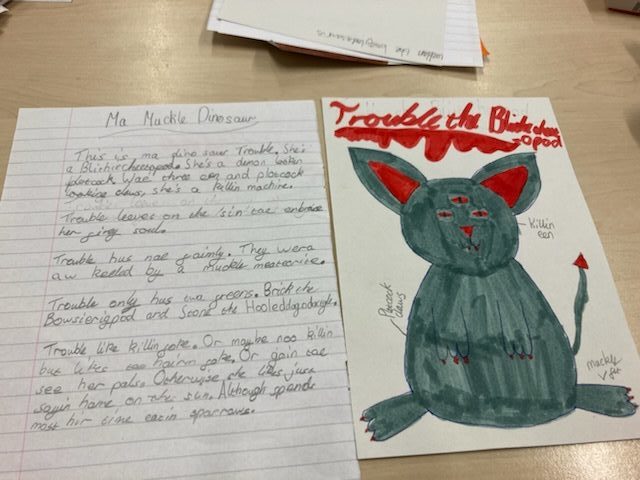 Ma Muckle Dinosaur
This is ma dino saur Trouble. She's
a Blitkircheetopod. She's a demon lookin
plotcock. Wae three een and plotcock
lookine claws, she's a killin machine.
Trouble leeves on the sin tae embrace
her firey soul.
Trouble has nae faimly. They wera
aw keeled by a muckle meteorite.
Trouble only has twa freens. Brick the
Bowsierigpod and Scone the
Trouble like killin foke. Or maybe noo killin
but likes hairm foke. Or gain tae
see her pals. Otherwise she likes just
stayin hame on the sun. Although spends
most hir time eatin sparrows.
Trouble the
opod
Killin
een
claws
muckle
fit